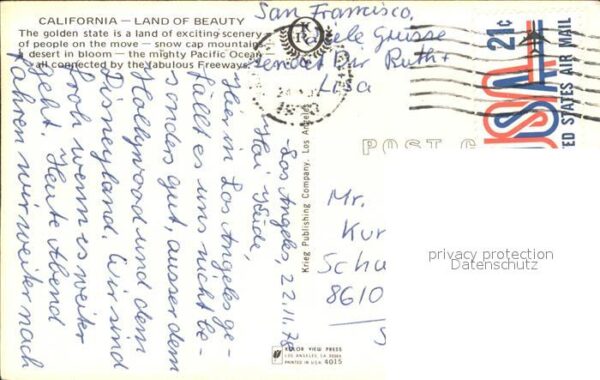 CALIFORNIA — LAND OF BEAUTY
The golden state is a land of exciting scenery
of people on the move — snow cap mountains,
a desert in bloom — the mighty Pacific Ocean
all connected by the fabulous Freeways.
Los Angeles, 22.11.78
Hoi Heidi,
Hier in Los Angeles ge-
fällt es uns nicht be-
sonders gut, ausser dem
Hollywood und dem
Disneyland. Wir sind
froh wenn es weiter
geht. Heute Abend
fahren wir weiter nach
San Francisco.
Viele Grüsse
sendet Dir Ruth +
Lisa
Krieg Publishing Company, Los Angeles
POST C
Mr.
Kur
Schu
8610
KOLOR VIEW PRESS
LOS ANGELES, CA
PRINTED IN U.S.A. 4015
21¢
USA
ED STATES AIR MAIL
privacy protection
Datenschutz